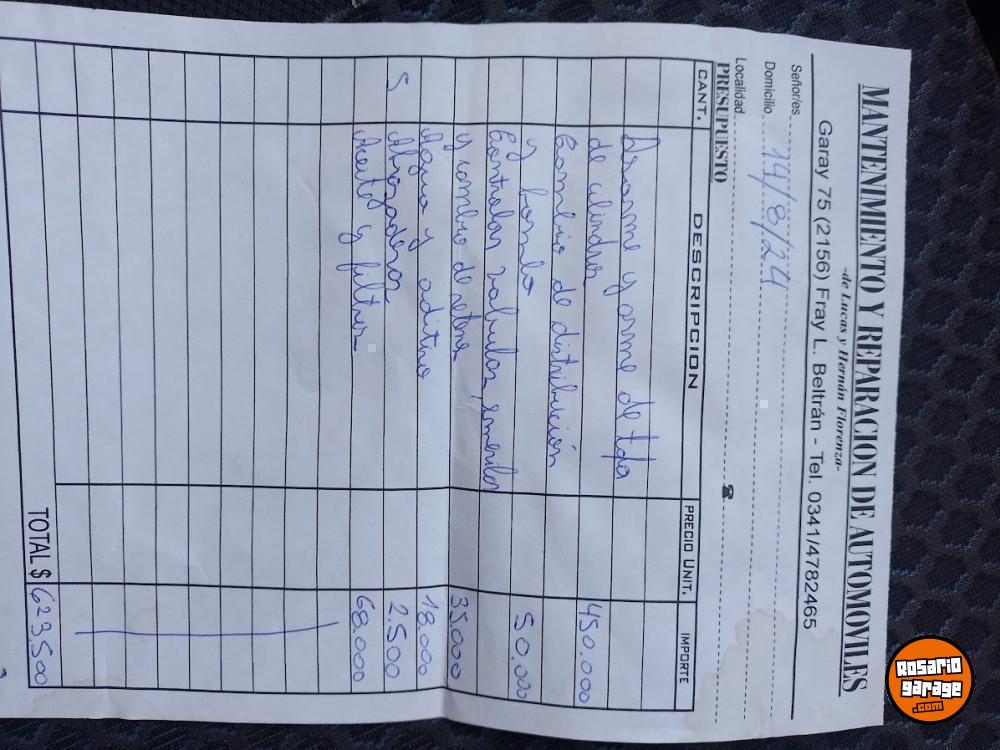 MANTENIMIENTO Y REPARACION DE AUTOMOVILES
-de Lucas y Hernán Florenza-
Garay 75 (2156) Fray L. Beltrán - Tel. 0341/4782465
Señor/es
Domicilio 14/8/24
Localidad
PRESUPUESTO
CANT. DESCRIPCION PRECIO UNIT. IMPORTE
Desarme y arme de tapa
de cilindros 450.000
Cambio de distribución
y bomba 50.000
Controlar valvulas, esmerilar
y cambio de retenes 35.000
Agua y aditivo 18.000
5 Abrazaderas 2.500
Aceite y filtros 68.000
TOTAL $ 623.500
ROSARIO
garage
.com